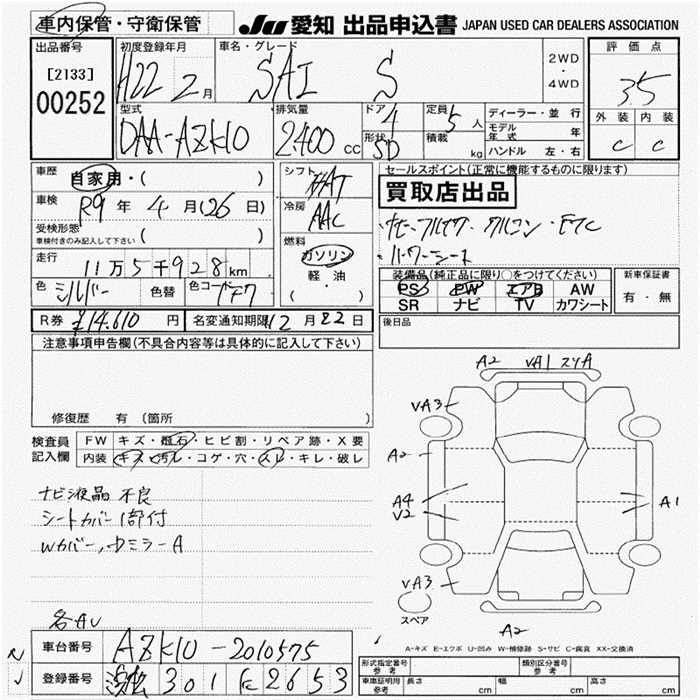 車内保管・守衛保管
JU 愛知 出品申込書 JAPAN USED CAR DEALERS ASSOCIATION
出品番号 [2133] 00252
初度登録年月 H22年 2月
車名・グレード SAI S
2WD・4WD
評価点 3.5
外装 C 内装 C
型式 DAA-AZK10
排気量 2400 CC
ドア 4
形状 5D
定員 5人
積載 kg
ディーラー・並行
モデル年式 年
ハンドル 左・右
車歴 自家用・( )
車検 R9年 4月(26日)
受検形態 ( )
車検付きのみ記入して下さい
走行 11万5千928km
色 シルバー 色替 色コード 1F7
シフト AT
冷房 AAC
燃料 ガソリン 軽・油 ( ・ )
セールスポイント(正常に機能するものに限ります)
買取店出品
ナビ・フルセグ・クルコン・ETC
パワーシート
装備品(純正品に限り○をつけてください)
PS PW エアB AW
SR ナビ TV カワシート
新車保証書 有・無
R券 ¥14,610 円 名変通知期限 12月22日
後日品
注意事項申告欄(不具合内容等は具体的に記入して下さい)
修復歴 有 (箇所 )
検査員記入欄
FW キズ・飛石・ヒビ割・リペア跡・X要
内装 キズ・汚レ・コゲ・穴・スレ・キレ・破レ
ナビ液晶 不良
シートカバー1部付
Wカバー,ドミラーA
各AU
A2 VA1 スリA
VA3
A2
A4
V2
A1
VA3
スペア
A2
A-キズ E-エクボ U-凹み W-補修跡 S-サビ C-腐食 XX-交換済
車台番号 AZK10-2010575
登録番号 301 2653
形式指定番号 参考
類別区分番号 参考
車庫証明用 参考 長さ cm 幅 cm 高さ cm